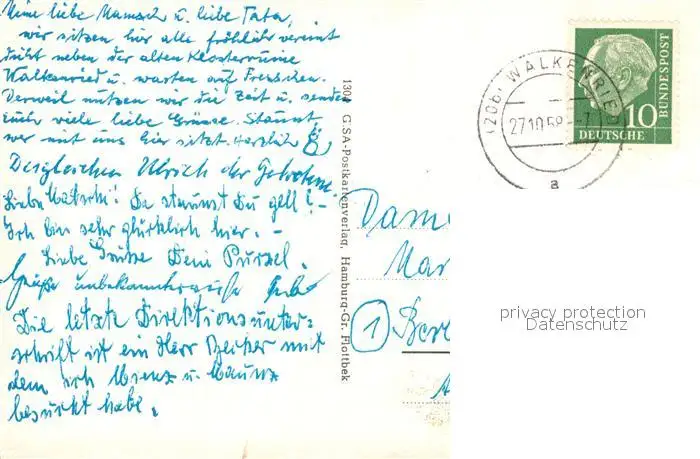 Meine liebe Mamsch u. liebe Tata,
wir sitzen hier alle fröhlich vereint
dicht neben der alten Klosterruine
Walkenried u. warten auf Fresschen.
Derweil nutzen wir die Zeit u. senden
Euch viele liebe Grüsse. Staunt,
wer mit uns hier sitzt. Herzlichst
Desgleichen Ulrich der
Liebe Matschi! Da staunst Du gell!-
Ich bin sehr glücklich hier. -
Liebe Grüsse Dein Purzel.
Grüße unbekannterweise
Die letzte Direktionsunter=
schrift ist ein Herr Becker mit
dem ich u.
besucht habe.
1304 G.SA-Postkartenverlag, Hamburg-Gr. Flottbek
(20b) WALKENRIED
27.10.58 - 7
a
10
DEUTSCHE
BUNDESPOST
Dam
Mar
1 Ber
privacy protection
Datenschutz